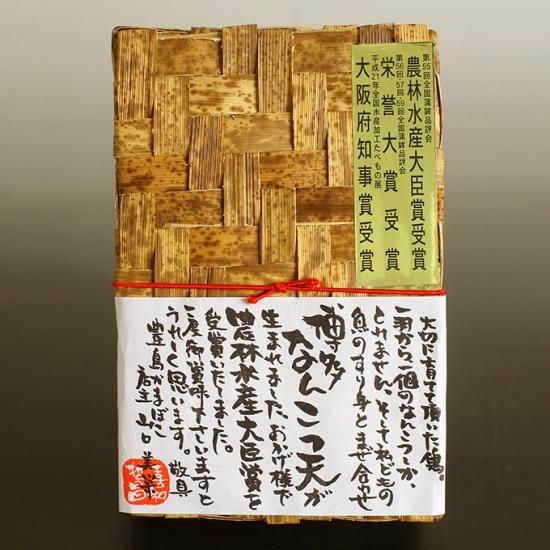 第55回全国蒲鉾品評会
農林水産大臣賞受賞
第56回・57回・59回全国蒲鉾品評会
栄誉大賞受賞
平成21年全国水産加工たべもの展
大阪府知事賞受賞
大切に育てて頂いた鶏。
一羽から一個のなんこつしか、
とれません。そして私どもの
魚のすり身とまぜ合せ
博多
なんこつ天が
生まれました。おかげ様で
農林水産大臣賞を
受賞いたしました。
一度御賞味下さいますと
うれしく思います。敬具
豊島かまぼこ
店主 山口美栄